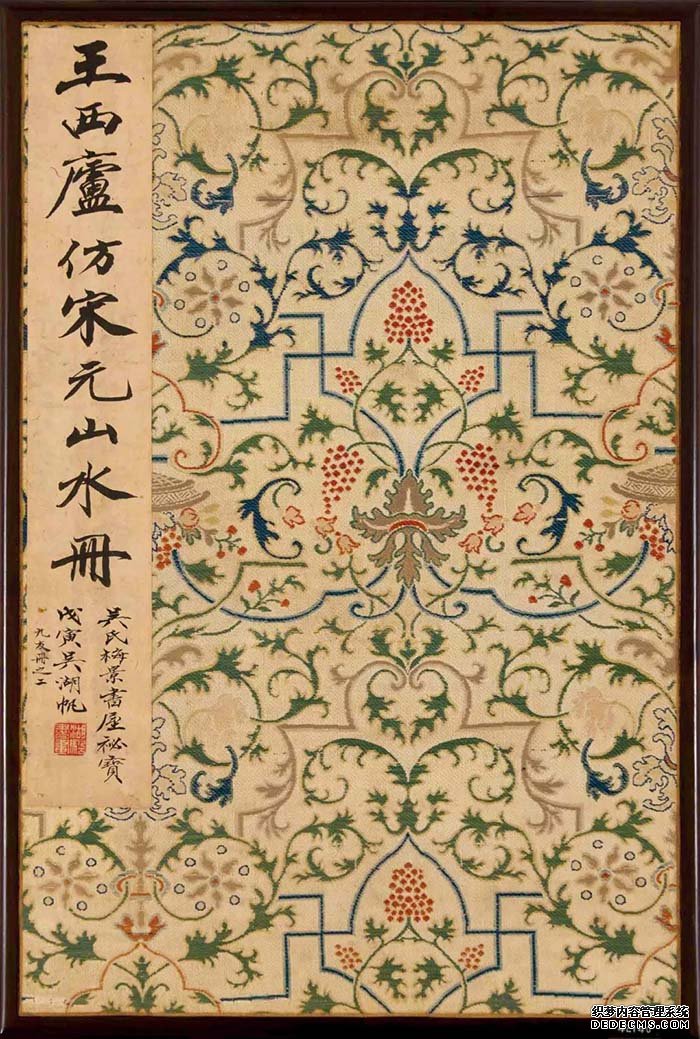 王西廬仿宋元山水冊
吴氏梅景書屋祕寶
戊寅吴湖帆
九友冊之二
织梦内容管理系统
DEDECMS.COM